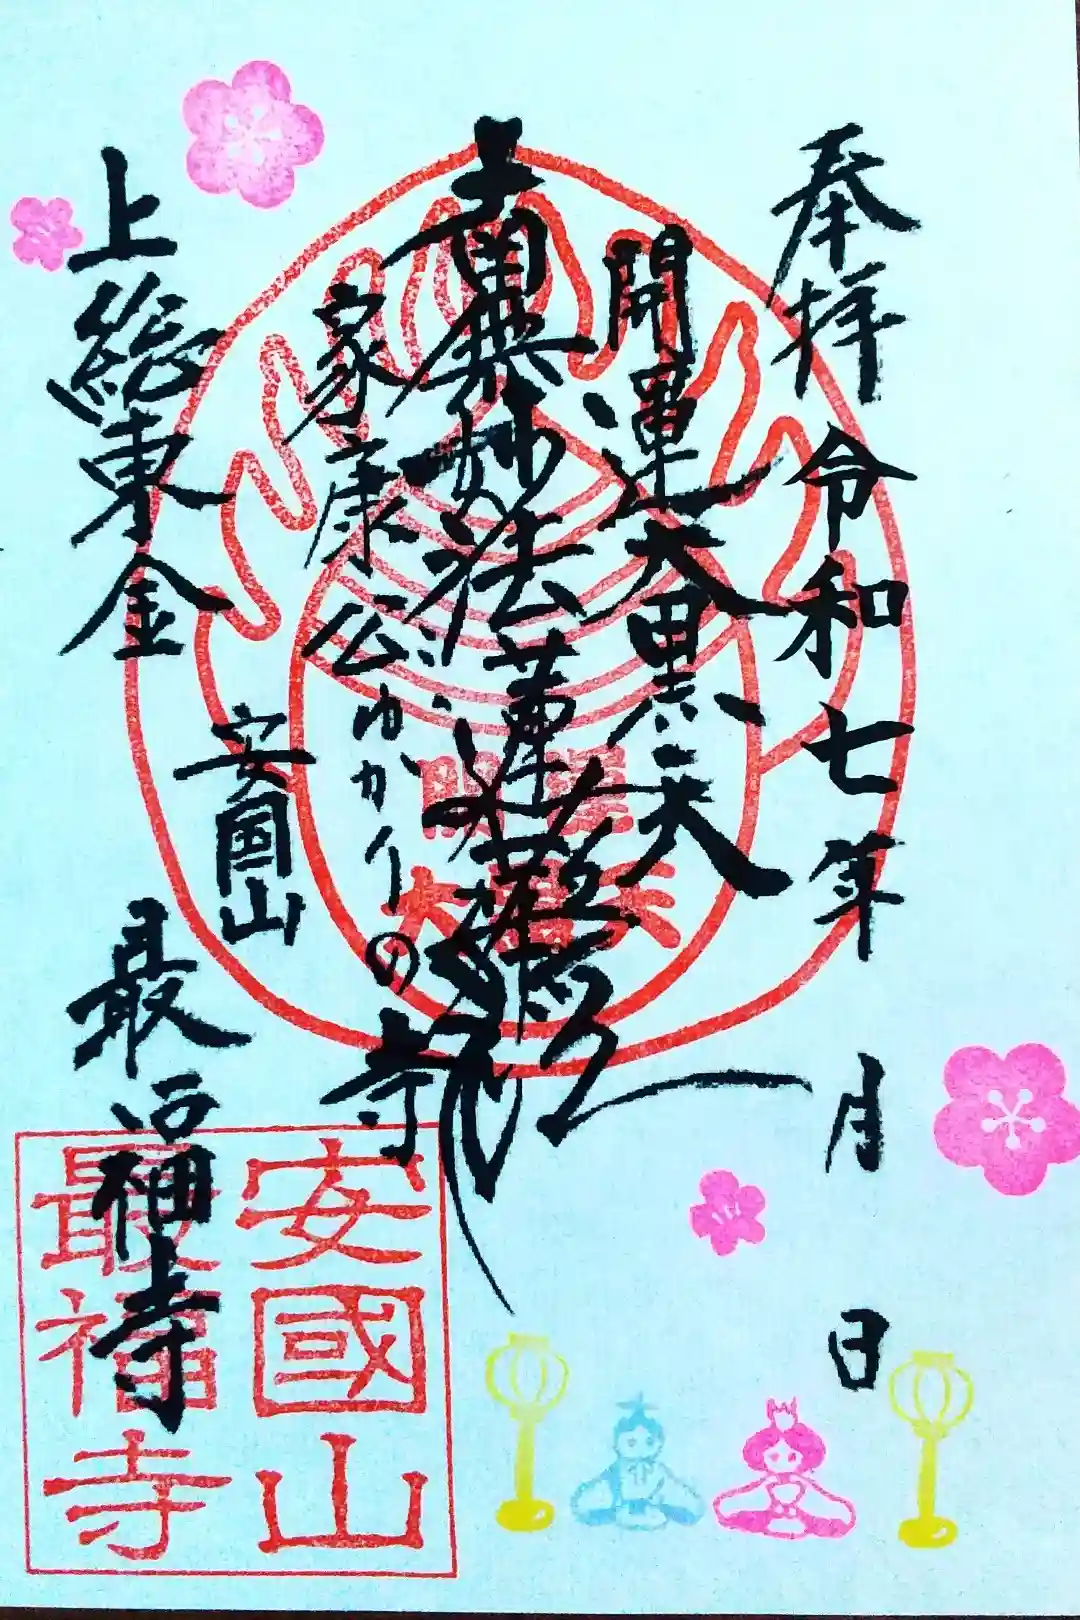 奉拝 令和七年 月 日
開運大黒天
南無妙法蓮華経
家康公ゆかりの寺
安国山
上総東金 最福寺
開運
大黒天
安國山
最福寺